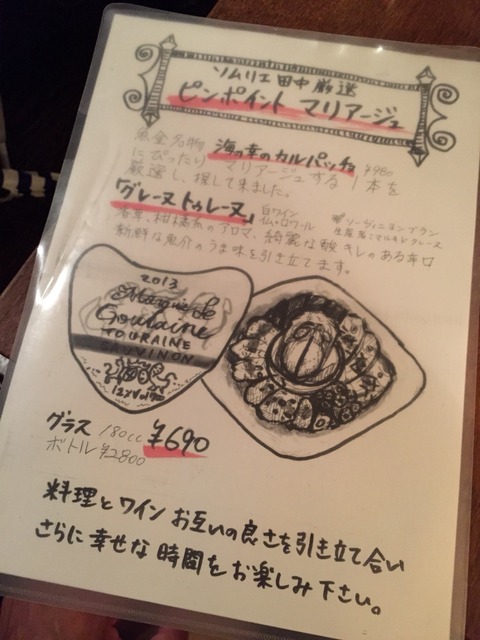 ソムリエ 田中 厳選
ピンポイント マリアージュ
魚金名物 海の幸のカルパッチョ ¥980
にぴったり マリアージュする 1本を
厳選し、探して来ました。
「グレーヌ トゥレーヌ」 白ワイン 仏・ロワール ソーヴィニヨンブラン
香草、柑橘系のアロマ、綺麗な酸 キレのある辛口
新鮮な魚介のうま味を引き立てます。
2013
Marquis de
Goulaine
TOURAINE
SAUVIGNON
12%vol
グラス 180cc ¥690
ボトル ¥2800
料理とワイン お互いの良さを引き立て合い
さらに幸せな時間をお楽しみ下さい。